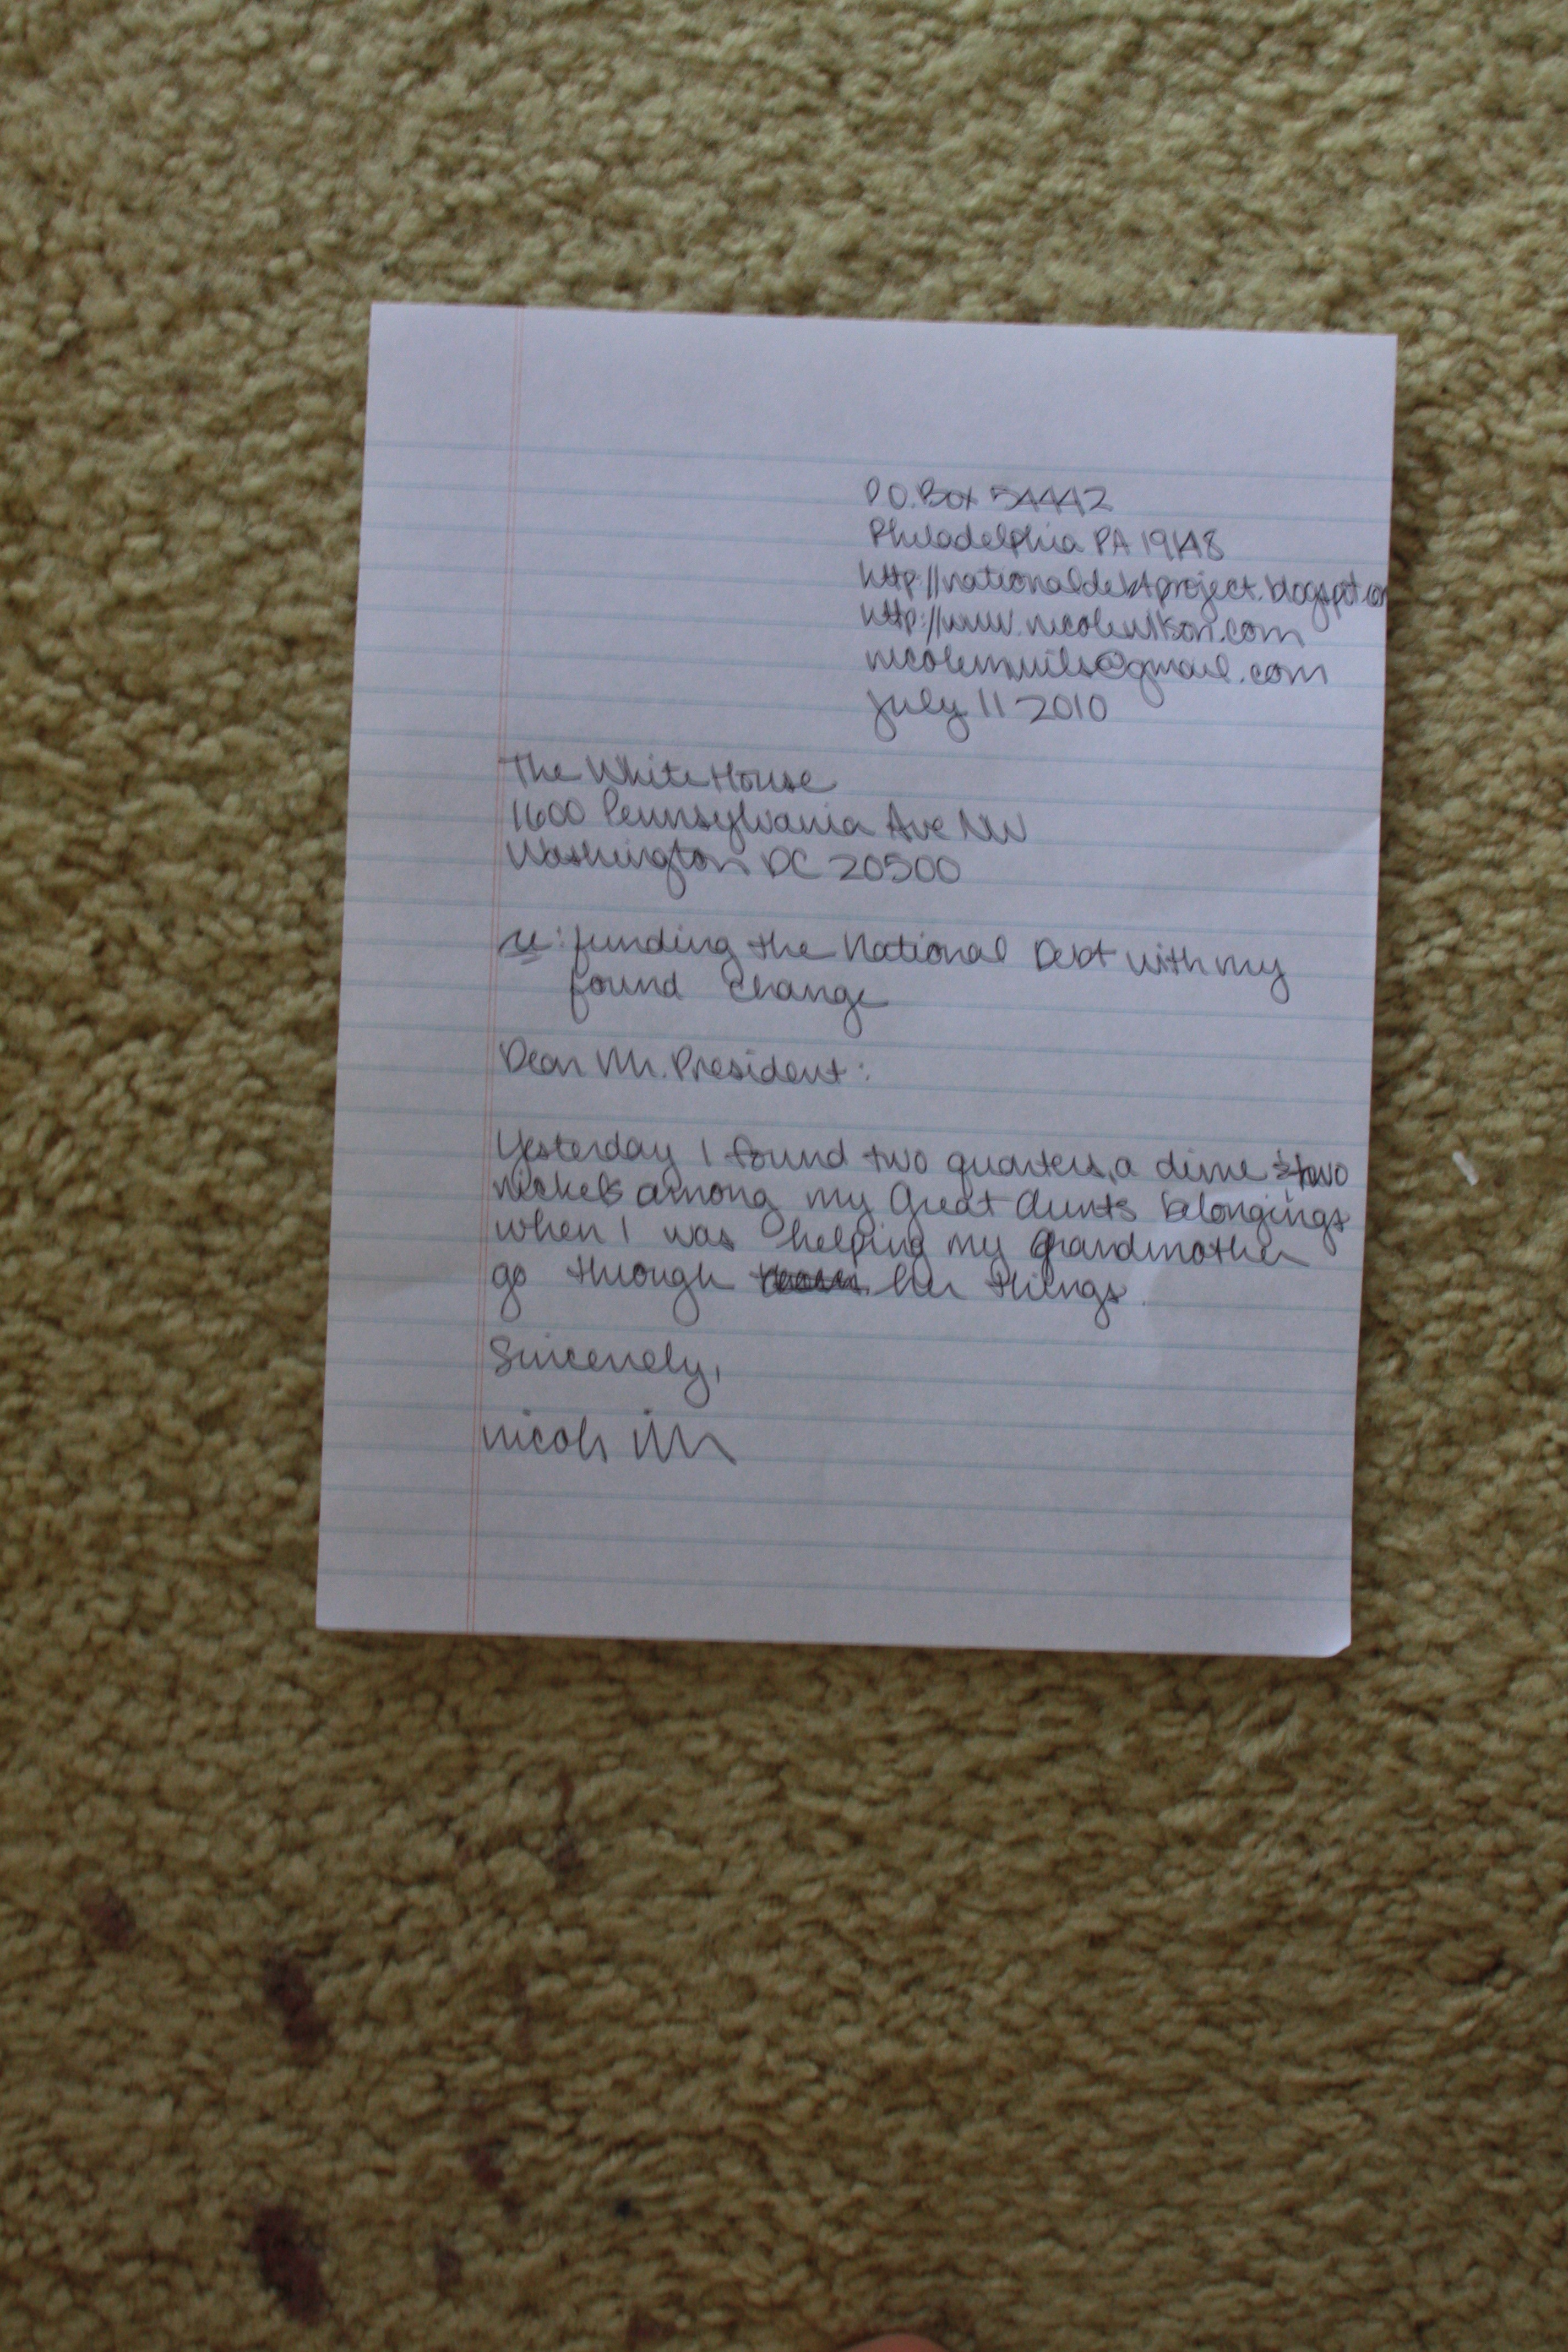 P.O. Box 54442
Philadelphia PA 19148
http://nationaldebtproject.blogspot.com
http://www.nicolewilson.com
july 11 2010
The White House
1600 Pennsylvania Ave NW
Washington DC 20500
re: funding the National Debt with my
found change
Dear Mr. President:
Yesterday I found two quarters, a dime & two
nickels among my Great Aunts belongings
when I was helping my grandmother
go through her things.
Sincerely,
nicole